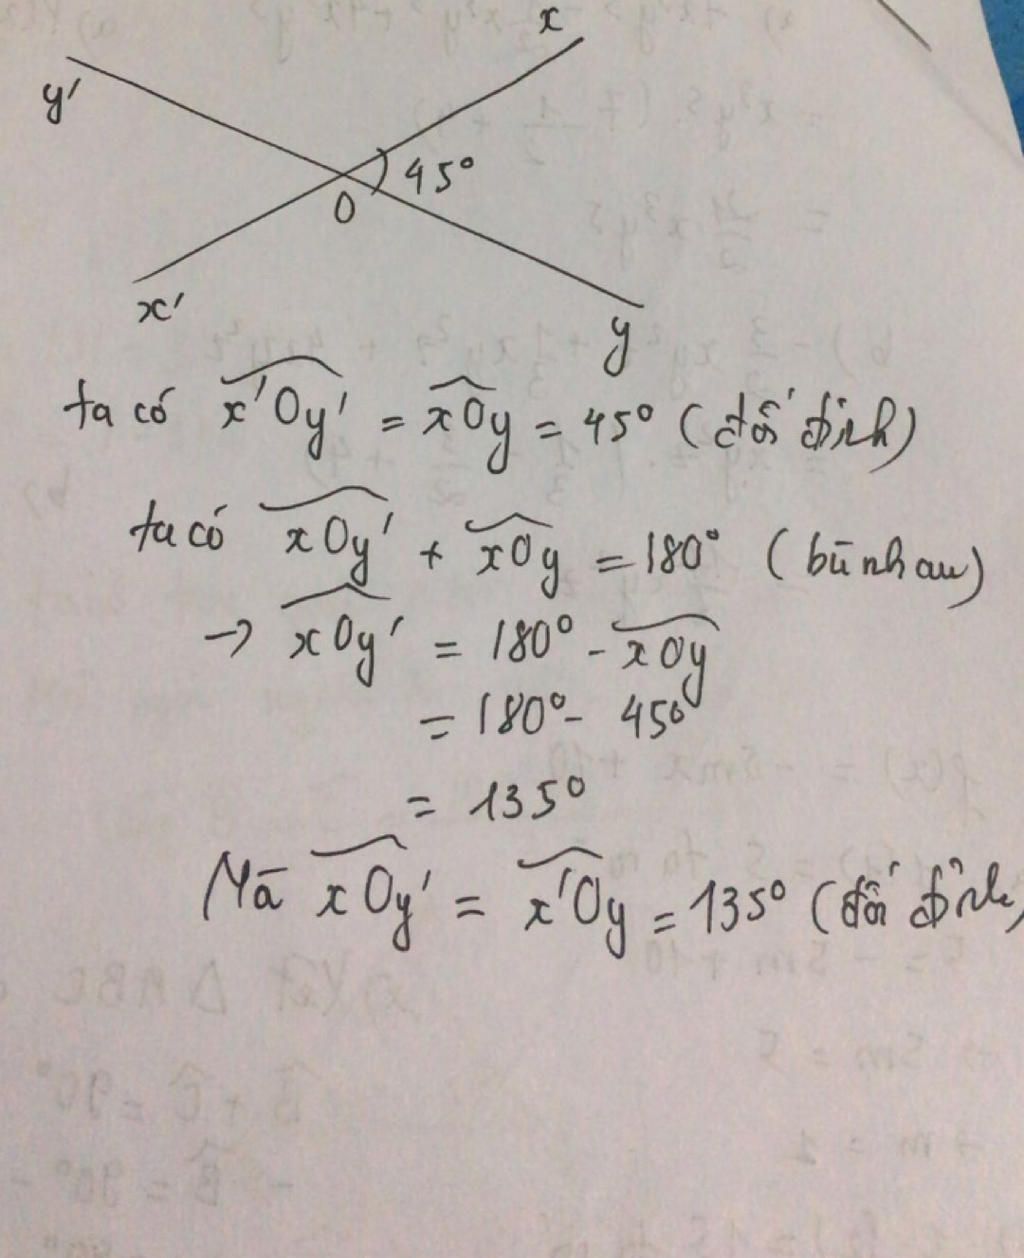 x
y'
45°
O
x'
y
ta có x'Oy' = xOy = 45° (đối đỉnh)
ta có xOy' + xOy = 180° (bù nhau)
→ xOy' = 180° - xOy
= 180° - 45°
= 135°
Mà xOy' = x'Oy = 135° (đối đỉnh)